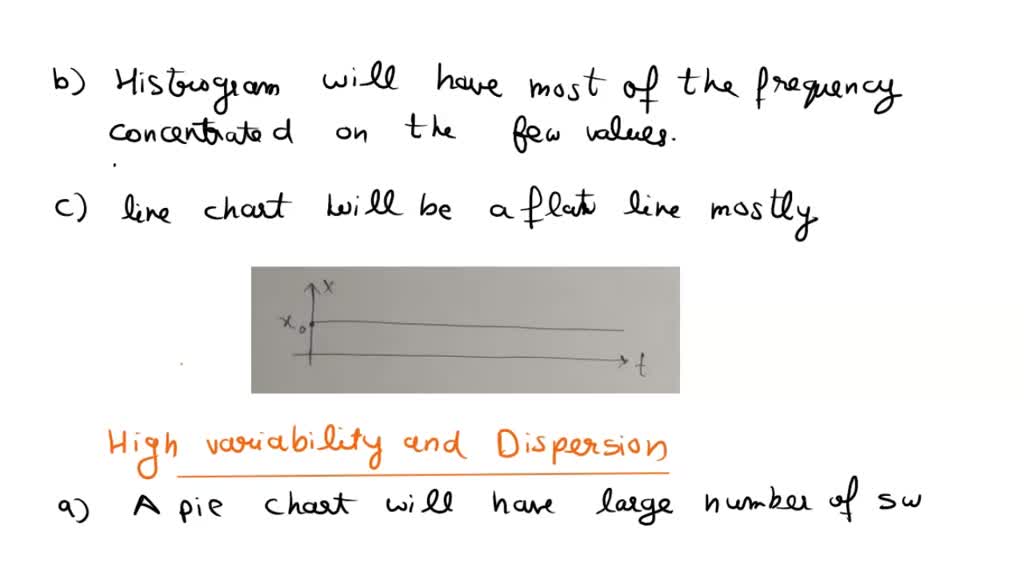 b) Histrogram will have most of the frequency
concentrated on the few values.
c) line chart will be a flat line mostly
x
x₀
t
High variability and Dispersion
a) A pie chart will have large number of sw